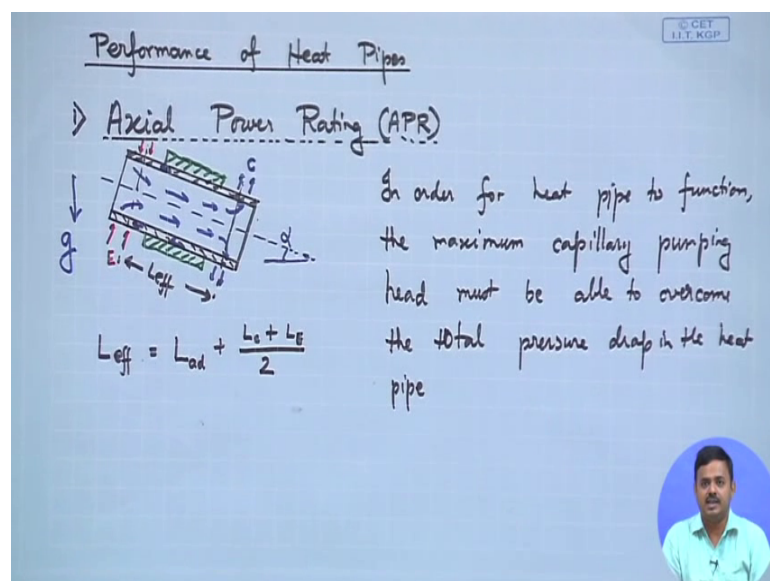 © CET
I.I.T. KGP
Performance of Heat Pipes
i) Axial Power Rating (APR)
g
E
C
α
Leff
In order for heat pipe to function,
the maximum capillary pumping
head must be able to overcome
the total pressure drop in the heat
pipe
Leff = Lad + Lc + LE / 2